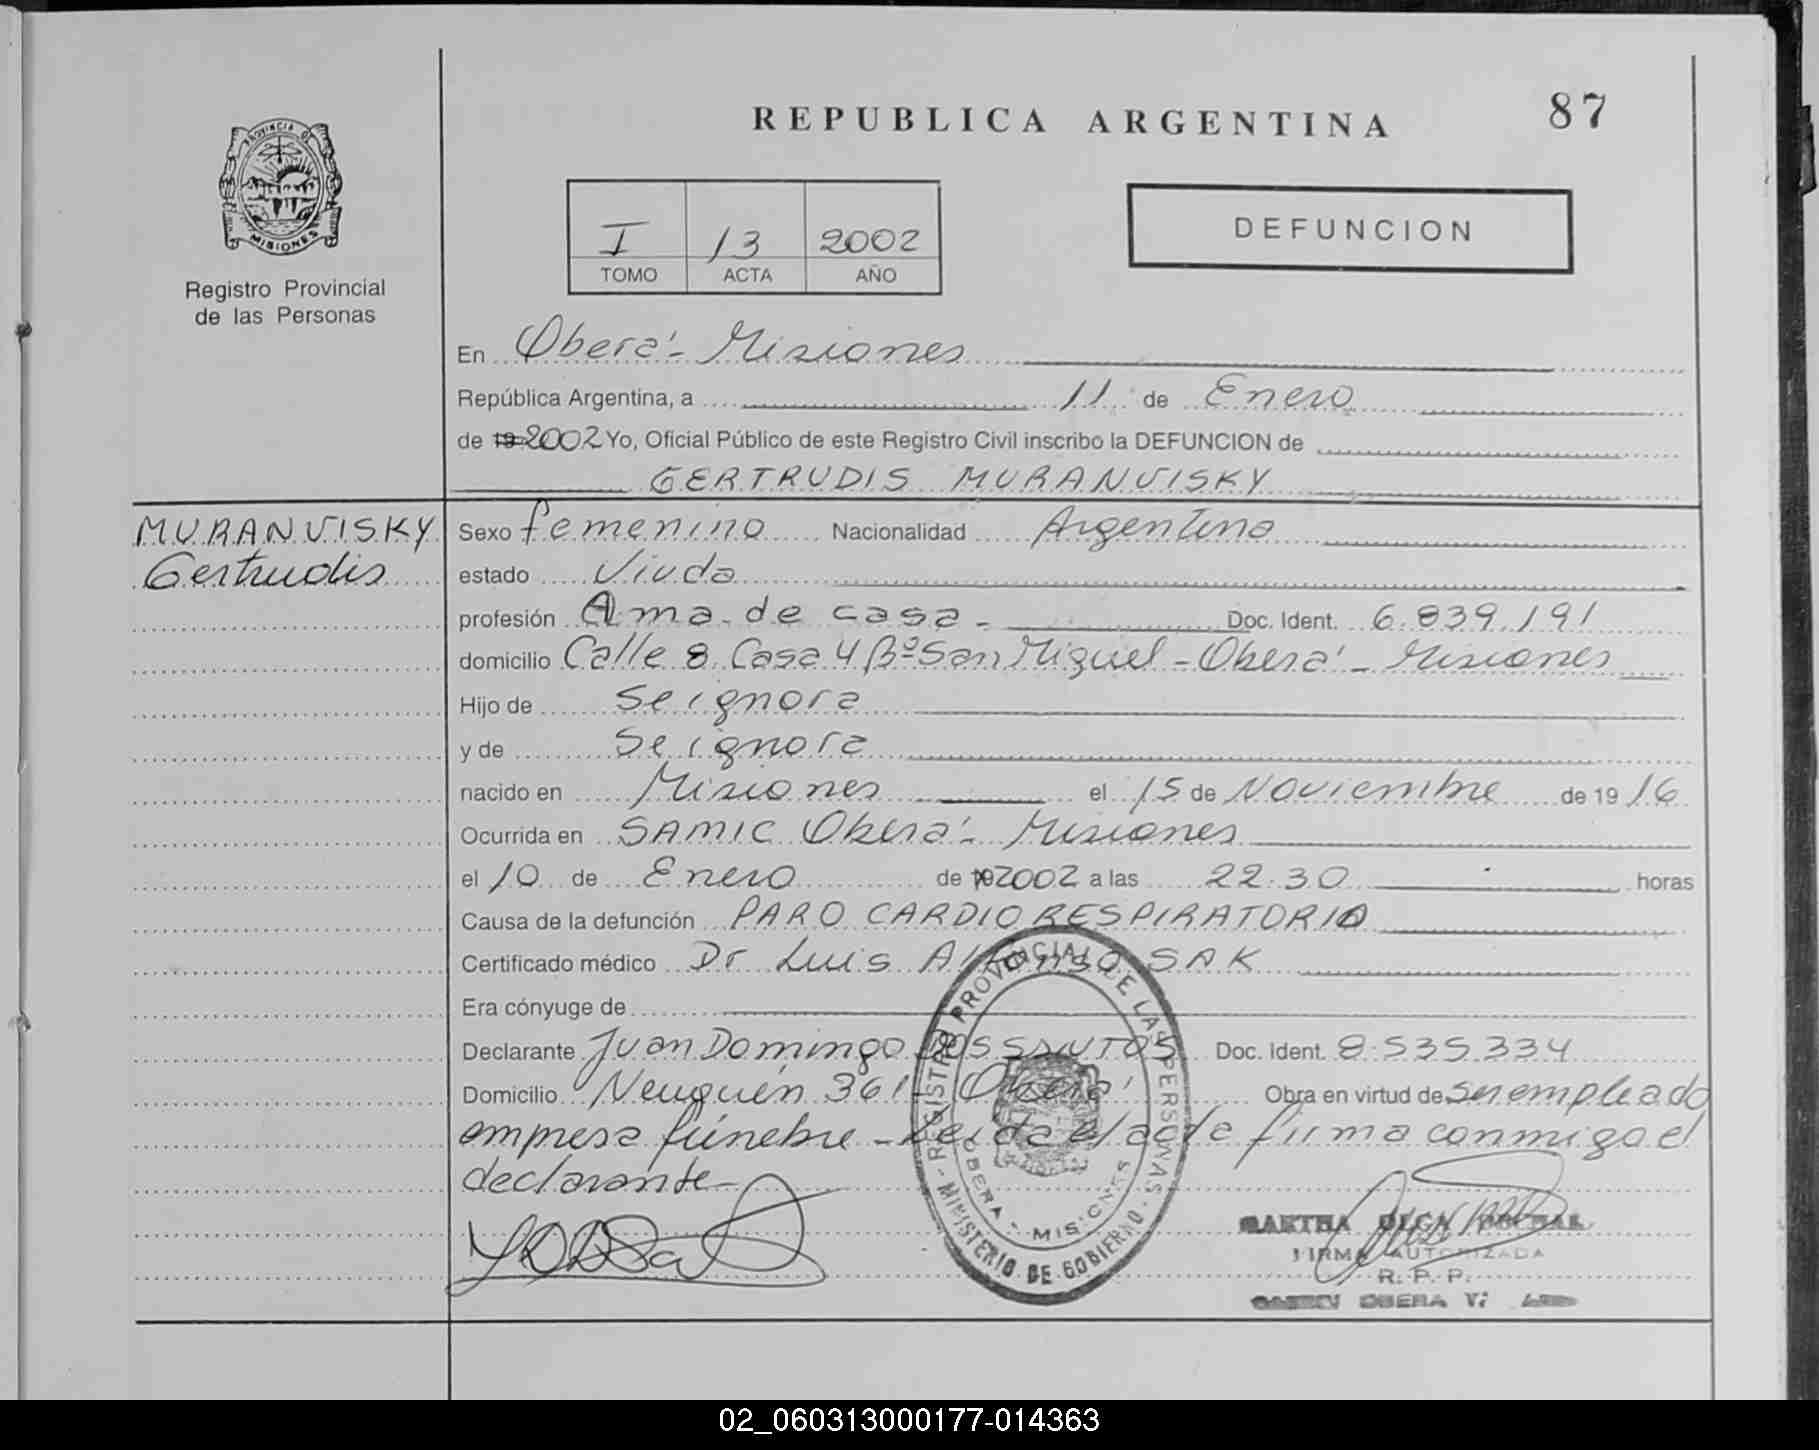 REPUBLICA ARGENTINA
87
PROVINCIA DE
MISIONES
Registro Provincial
de las Personas
I 13 2002
TOMO ACTA AÑO
DEFUNCION
En Oberá - Misiones
República Argentina, a 11 de Enero
de 19 2002 Yo, Oficial Público de este Registro Civil inscribo la DEFUNCION de
GERTRUDIS MURANVISKY
MURANVISKY
Gertrudis
Sexo femenino Nacionalidad Argentina
estado Viuda
profesión Ama de casa - Doc. Ident. 6.839.191
domicilio Calle 8 Casa 4 Bº San Miguel - Oberá - Misiones
Hijo de se ignora
y de se ignora
nacido en Misiones el 15 de Noviembre de 19 16
Ocurrida en SAMIC Oberá - Misiones
el 10 de Enero de 19 2002 a las 22.30 horas
Causa de la defunción PARO CARDIO RESPIRATORIO
Certificado médico Dr Luis Alfonso SAK
Era cónyuge de
Declarante Juan Domingo DOS SANTOS Doc. Ident. 8.535.334
Domicilio Neuquén 361 - Oberá Obra en virtud de ser empleado
empresa fúnebre - Leida el acta firma conmigo el
declarante -
REGISTRO PROVINCIAL DE LAS PERSONAS - MINISTERIO DE GOBIERNO -
OBERA - MISIONES
OLGA
FIRMA AUTORIZADA
R. P. P.
OBERA
02_060313000177-014363